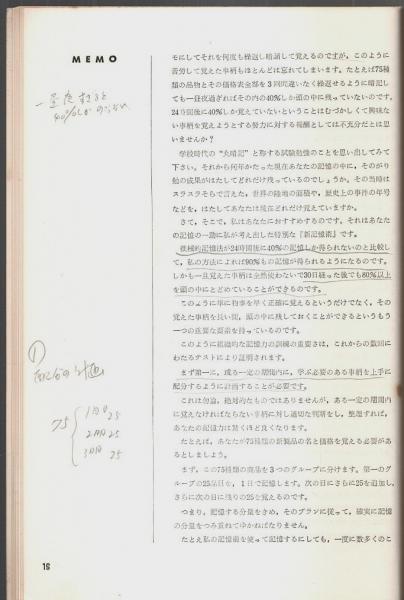 MEMO
一昼夜すぎると
40%しかのこらない
① 配分の計画
75 { 1日目 25
2日目 25
3日目 25
モにしてそれを何度も繰返し暗誦して覚えるのですが、このように
苦労して覚えた事柄もほとんどは忘れてしまいます。たとえば75種
類の品物とその価格表全部を3回間違いなく繰返せるように暗記し
ても一昼夜過ぎればその内の40%しか頭の中に残っていないのです。
24時間後に40%しか覚えていないということはむづかしくて興味な
い事柄を覚えようとする努力に対する報酬としては不充分だとは思
いませんか?
学校時代の“丸暗記”と称する試験勉強のことを思い出してみて
下さい。それから何年かたった現在あなたの記憶の中に、そのがり
勉の成果がはたしてどれだけ残っているのでしょうか。その当時は
スラスラそらで言えた、世界の陸地の面積や、歴史上の事件の年号
などを、はたしてあなたは現在どれだけ覚えていますか。
さて、そこで、私はあなたにおすすめするのです。それはあなた
の記憶の一助に私が考え出した特別な『新記憶術』です。
機械的記憶法が24時間後に40%の記憶しか得られないのと比較し
て、私の方法によれば90%もの記憶が得られるようになるのです。
しかも一旦覚えた事柄は全然使わないで30日経った後でも80%以上
を頭の中にとどめていることができるのです。
このように単に物事を早く正確に覚えるというだけでなく、その
覚えた事柄を長い間、頭の中に残しておくことができるというもう
一つの重要な要素を持っているのです。
このように組織的な記憶力の訓練の重要さは、これからの数回に
わたるテストにより証明されます。
まず第一に、或る一定の期間内に、学ぶ必要のある事柄を上手に
配分するように計画することが必要です。
これは勿論、絶対的なものではありませんが、ある一定の期間内
に覚えなければならない事柄に対し適切な判断をし、整理すれば、
あなたの記憶力は驚くほど良くなります。
たとえば、あなたが75種類の新製品の名と価格を覚える必要があ
るとしましょう。
まず、この75種類の商品を3つのグループに分けます。第一のグ
ループの25品目を、1日で記憶します。次の日にさらに25を追加し、
さらに次の日に残りの25を覚えるのです。
つまり、記憶する分量をきめ、そのプランに従って、確実に記憶
の分量をつみ重ねてゆかねばなりません。
たとえ私の記憶術を使って記憶するにしても、一度に数多くのこ
16